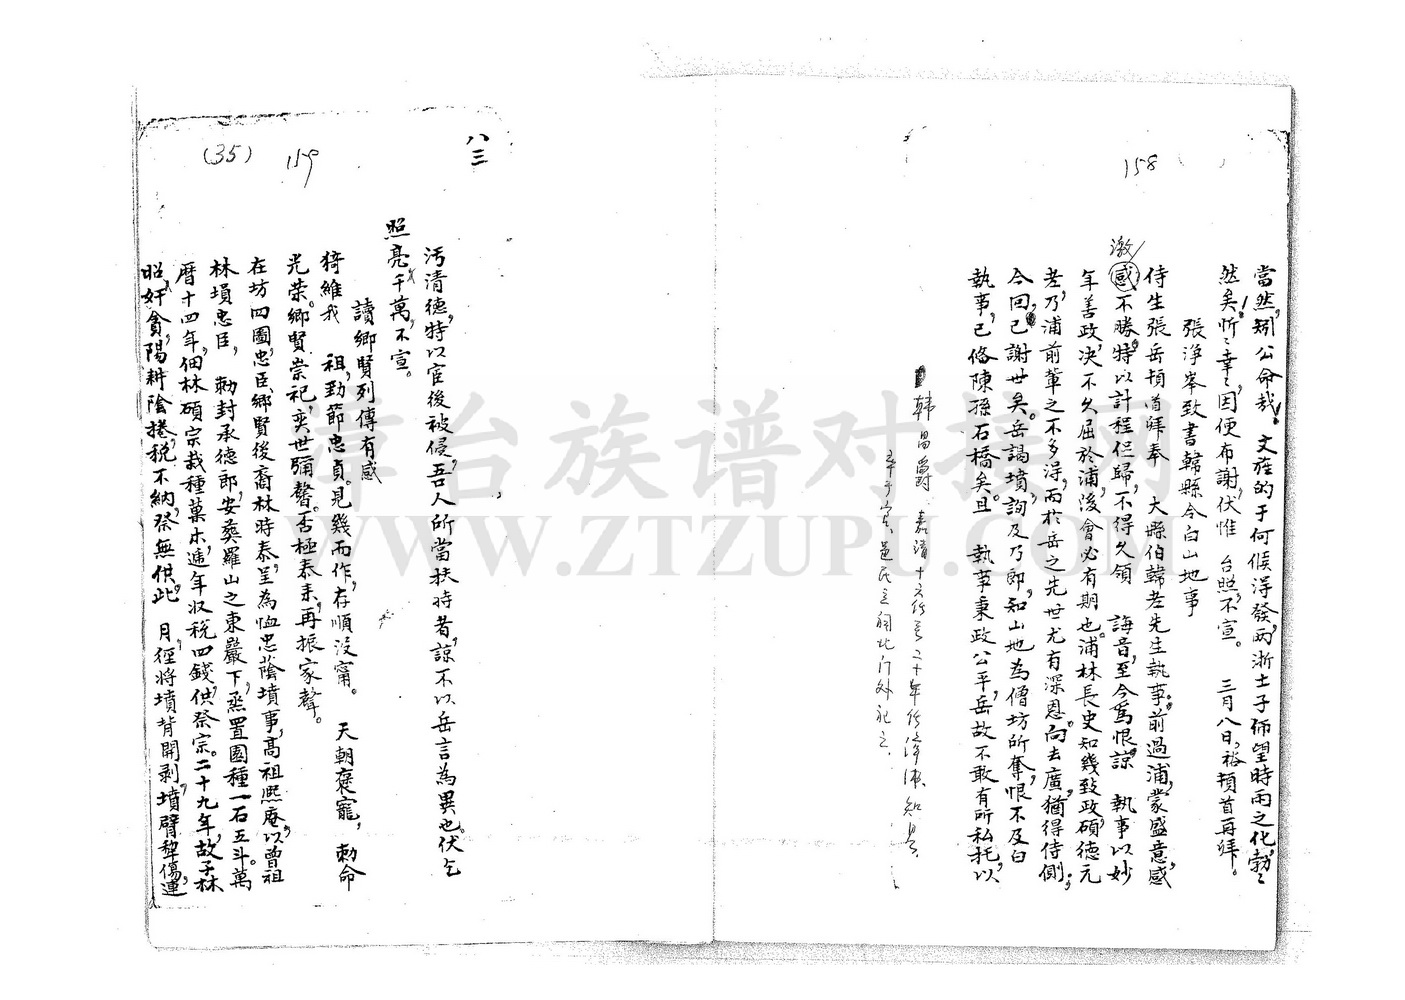 158
當然，矧公命哉！文旌的于何候得發，兩浙士子佈望時雨之化，勃〻
然矣！忻〻幸〻，因便布謝，伏惟　台照，不宣。　三月八日，裕頓首再拜。
張淨峯致書韓縣令白山地事
侍生張岳頓首拜奉　大縣伯韓老先生執事。前過浦，蒙盛意，感
激
感不勝，特以計程促歸，不得久領　誨音，至今爲恨。諒　執事以妙
年善政，决不久屈於浦，後會必有期也。浦林長史知幾致政，碩德元
老，乃浦前輩之不多得，而於岳之先世尤有深恩。向去廣，猶得侍側；
今回，已謝世矣。岳謁墳，詢及乃郎，知山地為僧坊所奪，恨不及白
執事，已俻陳孫石橋矣。且　執事秉政公平，岳故不敢有所私托，以
韓昌爵　嘉清十六任至二十年任漳浦知县
卒于官，邑民立祠北门外祀之
八三
159
(35)
汚清德，特以宦後被侵，吾人所當扶持者，諒不以岳言為異也。伏乞
照亮千萬，不宣。
讀鄉賢列傳有感
猗維我　祖，勁節忠貞。見幾而作，存順沒甯。　天朝褒寵，勅命
光荣。鄉賢崇祀，奕世彌馨。否極泰来，再振家聲。
在坊四圖，忠臣、鄉賢後裔林時泰呈，為恤忠蔭墳事，高祖熙庵，以曾祖
林塤忠臣，勅封承德郎，安葬羅山之東嚴下，烝置園種一石五斗。萬
曆十四年，佃林碩宗栽種菓木，遞年収税四錢，供祭宗。二十九年，故子林
昭，奸貪，陽耕陰捲，税不納，祭無供，此　月，徑將墳背開剥，墳臂犂傷，連
漳台族谱对接网
WWW.ZTZUPU.COM